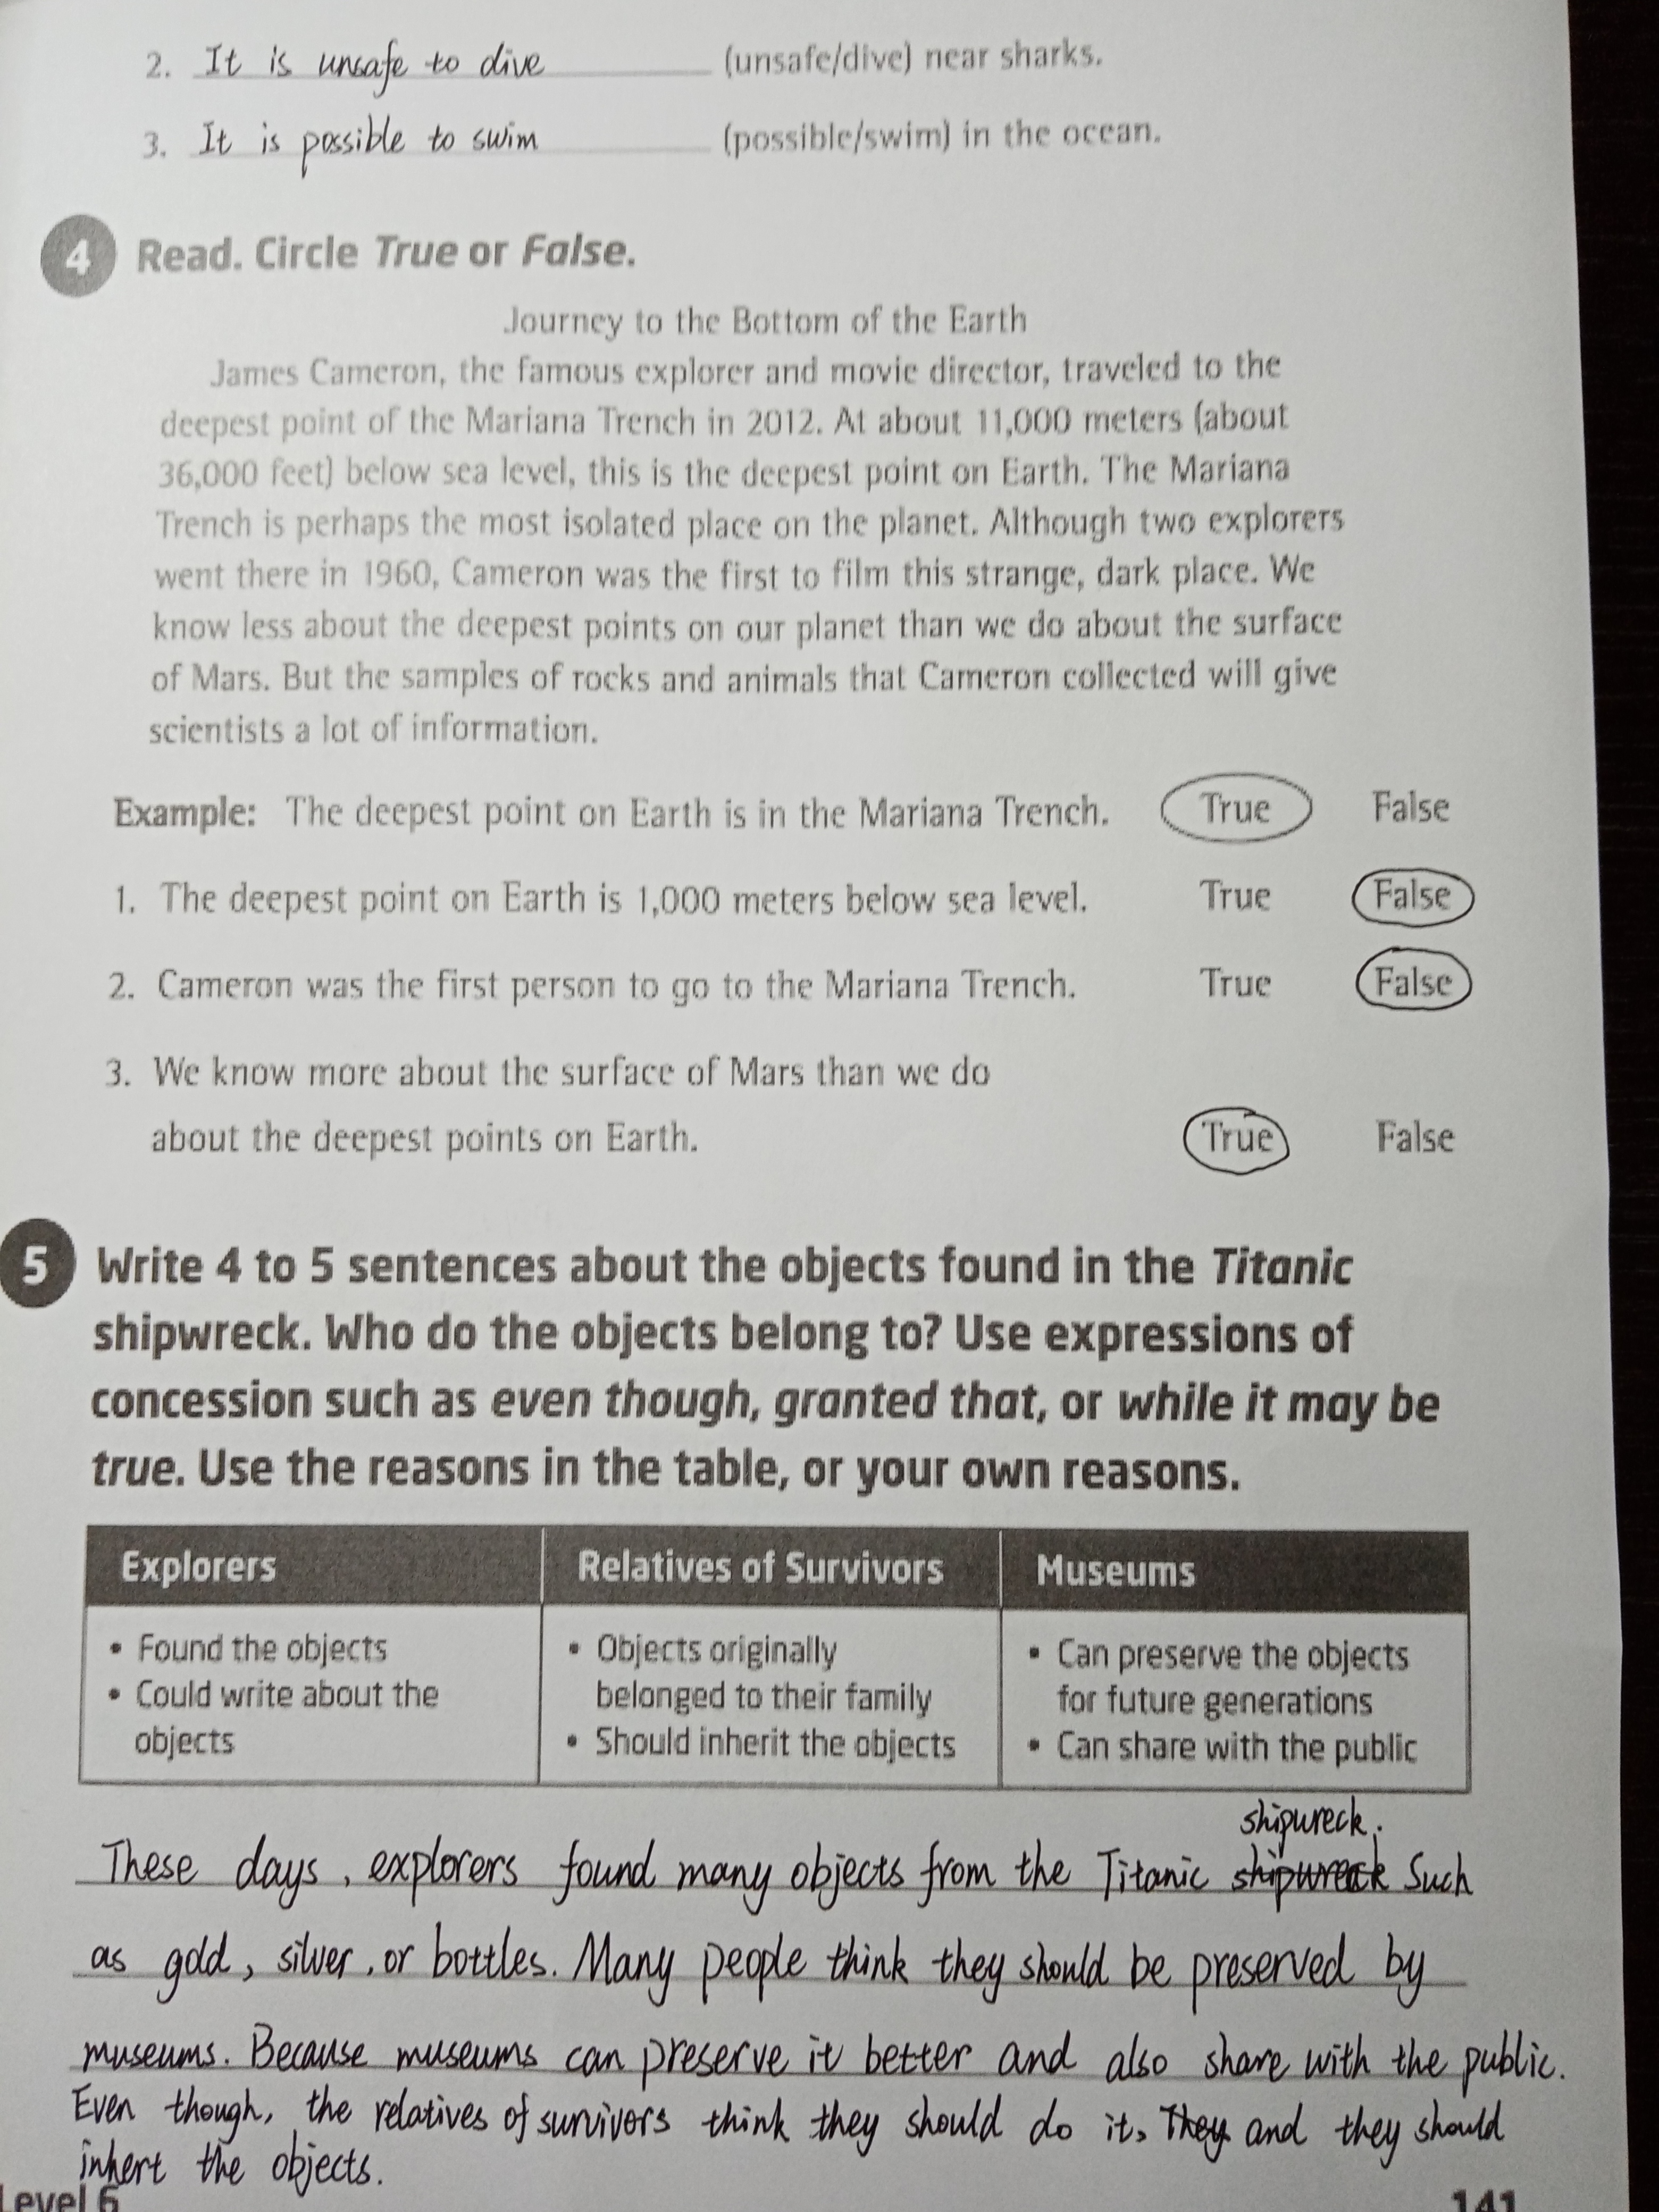 2. It is unsafe to dive (unsafe/dive) near sharks.
3. It is possible to swim (possible/swim) in the ocean.
4 Read. Circle True or False.
Journey to the Bottom of the Earth
James Cameron, the famous explorer and movie director, traveled to the
deepest point of the Mariana Trench in 2012. At about 11,000 meters (about
36,000 feet) below sea level, this is the deepest point on Earth. The Mariana
Trench is perhaps the most isolated place on the planet. Although two explorers
went there in 1960, Cameron was the first to film this strange, dark place. We
know less about the deepest points on our planet than we do about the surface
of Mars. But the samples of rocks and animals that Cameron collected will give
scientists a lot of information.
Example: The deepest point on Earth is in the Mariana Trench. True False
1. The deepest point on Earth is 1,000 meters below sea level. True False
2. Cameron was the first person to go to the Mariana Trench. True False
3. We know more about the surface of Mars than we do
about the deepest points on Earth. True False
5 Write 4 to 5 sentences about the objects found in the Titanic
shipwreck. Who do the objects belong to? Use expressions of
concession such as even though, granted that, or while it may be
true. Use the reasons in the table, or your own reasons.
Explorers Relatives of Survivors Museums
• Found the objects
• Could write about the
objects
• Objects originally
belonged to their family
• Should inherit the objects
• Can preserve the objects
for future generations
• Can share with the public
shipwreck.
These days, explorers found many objects from the Titanic shipwreck Such
as gold, silver, or bottles. Many people think they should be preserved by
museums. Because museums can preserve it better and also share with the public.
Even though, the relatives of survivors think they should do it, They and they should
inhert the objects.
Level 6
141